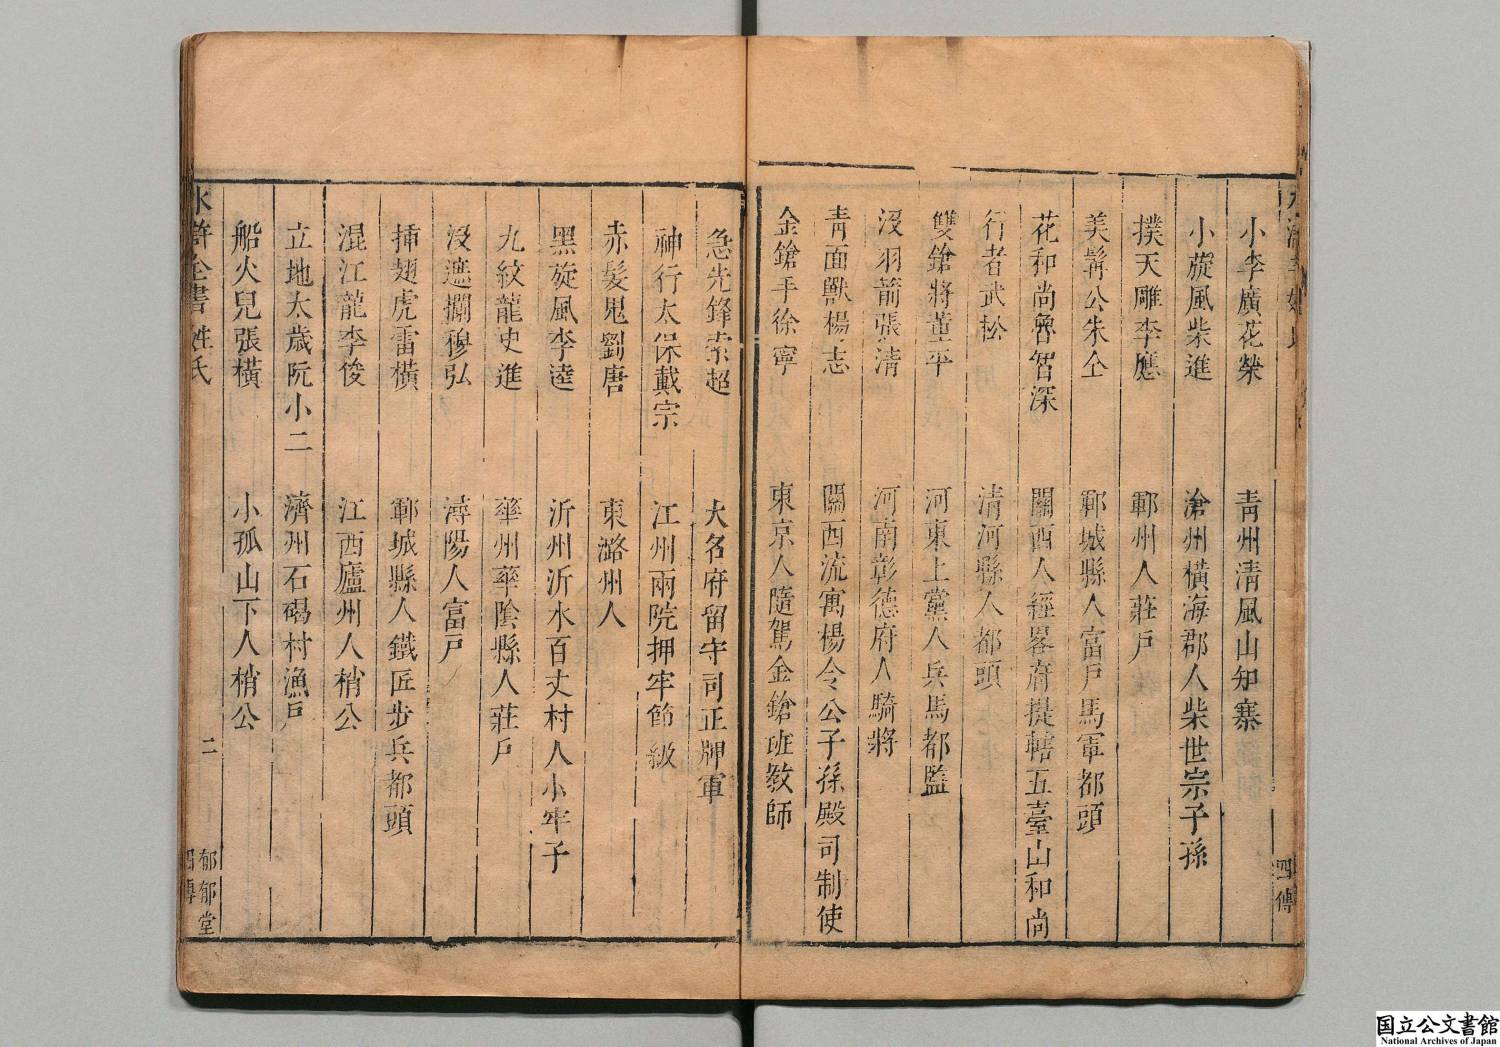 小李廣花榮　青州清風山知寨
小旋風柴進　滄州橫海郡人柴世宗子孫
撲天雕李應　鄆州人莊戶
美髯公朱仝　鄆城縣人富戶馬軍都頭
花和尚魯智深　關西人經畧府提轄五臺山和尚
行者武松　清河縣人都頭
雙鎗將董平　河東上黨人兵馬都監
沒羽箭張清　河南彰德府人騎將
靑面獸楊志　關西流寓楊令公子孫殿司制使
金鎗手徐寧　東京人隨駕金鎗班教師
四傳
急先鋒索超　大名府留守司正牌軍
神行太保戴宗　江州兩院押牢節級
赤髮鬼劉唐　東潞州人
黑旋風李逵　沂州沂水百丈村人小牢子
九紋龍史進　華州華陰縣人莊戶
沒遮攔穆弘　潯陽人富戶
插翅虎雷橫　鄆城縣人鐵匠步兵都頭
混江龍李俊　江西廬州人梢公
立地太歲阮小二　濟州石碣村漁戶
船火兒張橫　小孤山下人梢公
水滸全書　姓氏　二　郁郁堂
四傳
国立公文書館
National Archives of Japan